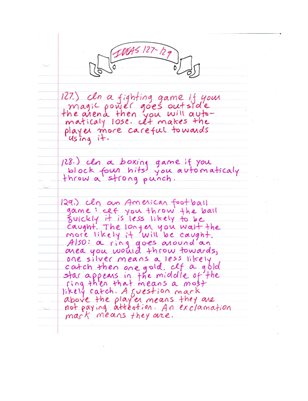 IDEAS 127-129
127.) In a fighting game if your
magic power goes outside
the arena then you will auto-
maticaly lose. It makes the
player more careful towards
using it.
128.) In a boxing game if you
block four hits you automaticaly
throw a strong punch.
129.) In an American football
game: If you throw the ball
quickly it is less likely to be
caught. The longer you wait the
more likely it will be caught.
Also: a ring goes around an
area you would throw towards,
one silver means a less likely
catch then one gold. If a gold
star appears in the middle of the
ring then that means a most
likely catch. A question mark
above the player means they are
not paying attention. An exclamation
mark means they are.